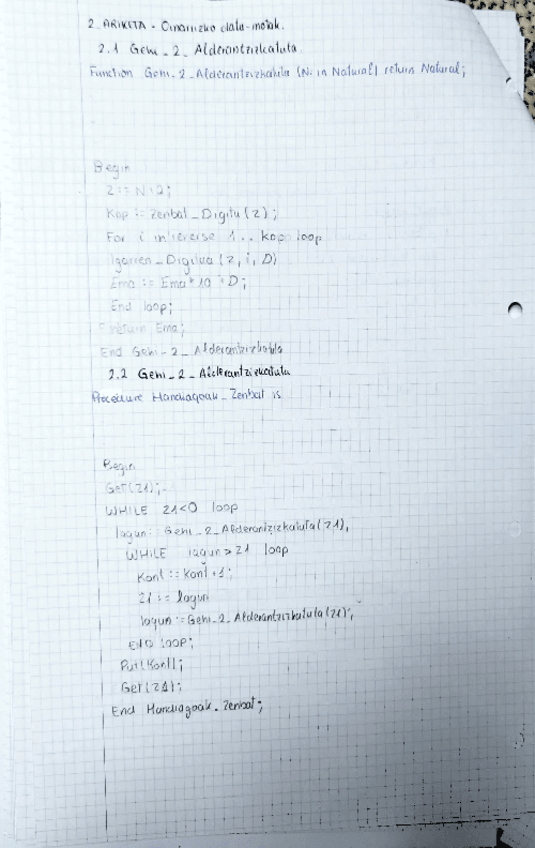 2. ARIKETA - Oinarrizko datu-motak.
2.1 Gehi_2_Alderantzizkatuta
Function Gehi_2_Alderantzizkatuta (N: in Natural) return Natural;
Begin
Z := N+2;
Kop := Zenbat_Digitu(Z);
For i in reverse 1..kop loop
Igarren_Digitua (Z, i, D)
Ema := Ema*10 + D;
End loop;
return Ema;
End Gehi_2_Alderantzizkatuta
2.2 Gehi_2_Alderantzizkatuta
Procedure Handiagoak_Zenbat is
Begin
Get(Z1);
WHILE Z1<0 loop
lagun: Gehi_2_Alderantzizkatuta(Z1),
WHILE lagun>Z1 loop
Kont := kont+1;
Z1 := lagun
lagun := Gehi_2_Alderantzizkatuta(Z1);
END loop;
Put(Kont);
Get(Z1);
End Handiagoak_Zenbat;